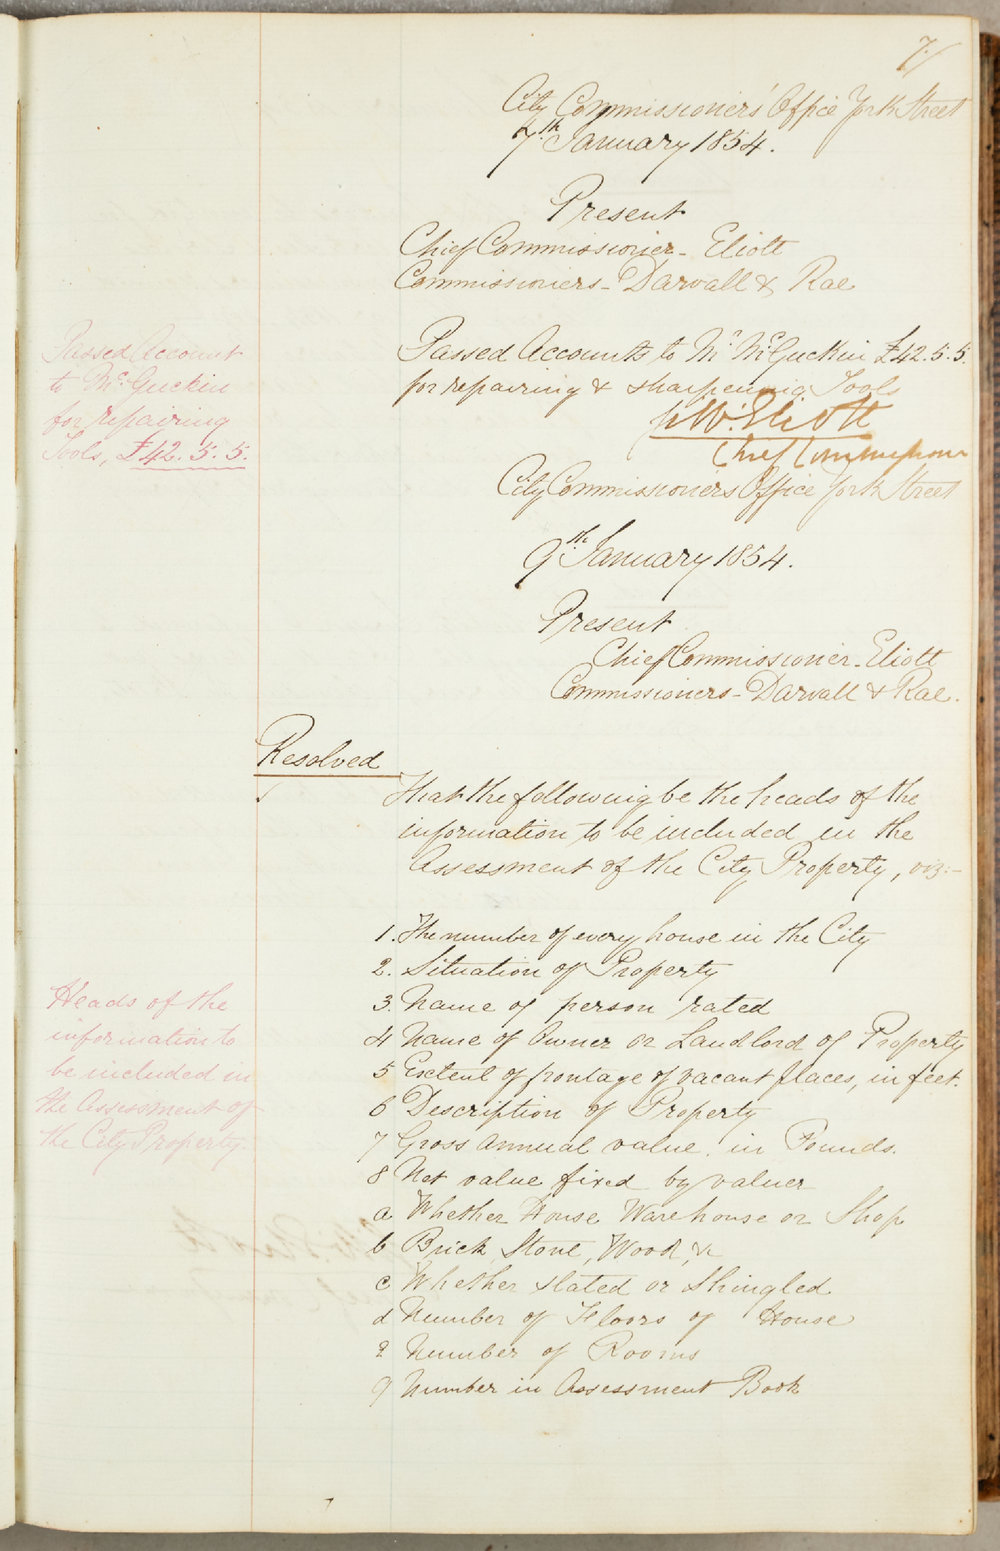 7/
City Commissioners' Office York Street
7th January 1854.
Present
Chief Commissioner - Eliott
Commissioners - Darvall & Rae
Passed Account
to McGuckin
for repairing
Tools, £42. 5. 5.
Passed Accounts to Mr McGuckin £42. 5. 5.
for repairing & sharpening Tools
W. Eliott
Chief Commissioner
City Commissioners Office York Street
9th January 1854.
Present
Chief Commissioner - Eliott
Commissioners - Darvall & Rae.
Resolved
That the following be the heads of the
information to be included in the
Assessment of the City Property, viz:-
Heads of the
information to
be included in
the Assessment of
the City Property.
1. The number of every house in the City
2. Situation of Property
3. Name of person rated
4 Name of Owner or Landlord of Property
5 Extent of frontage of vacant places, in feet.
6 Description of Property
7 Gross annual value, in Pounds.
8 Net value fixed by valuer
a Whether House Warehouse or Shop
b Brick, Stone, Wood, &c
c Whether slated or Shingled
d Number of Floors of House
e Number of Rooms
9 Number in Assessment Book